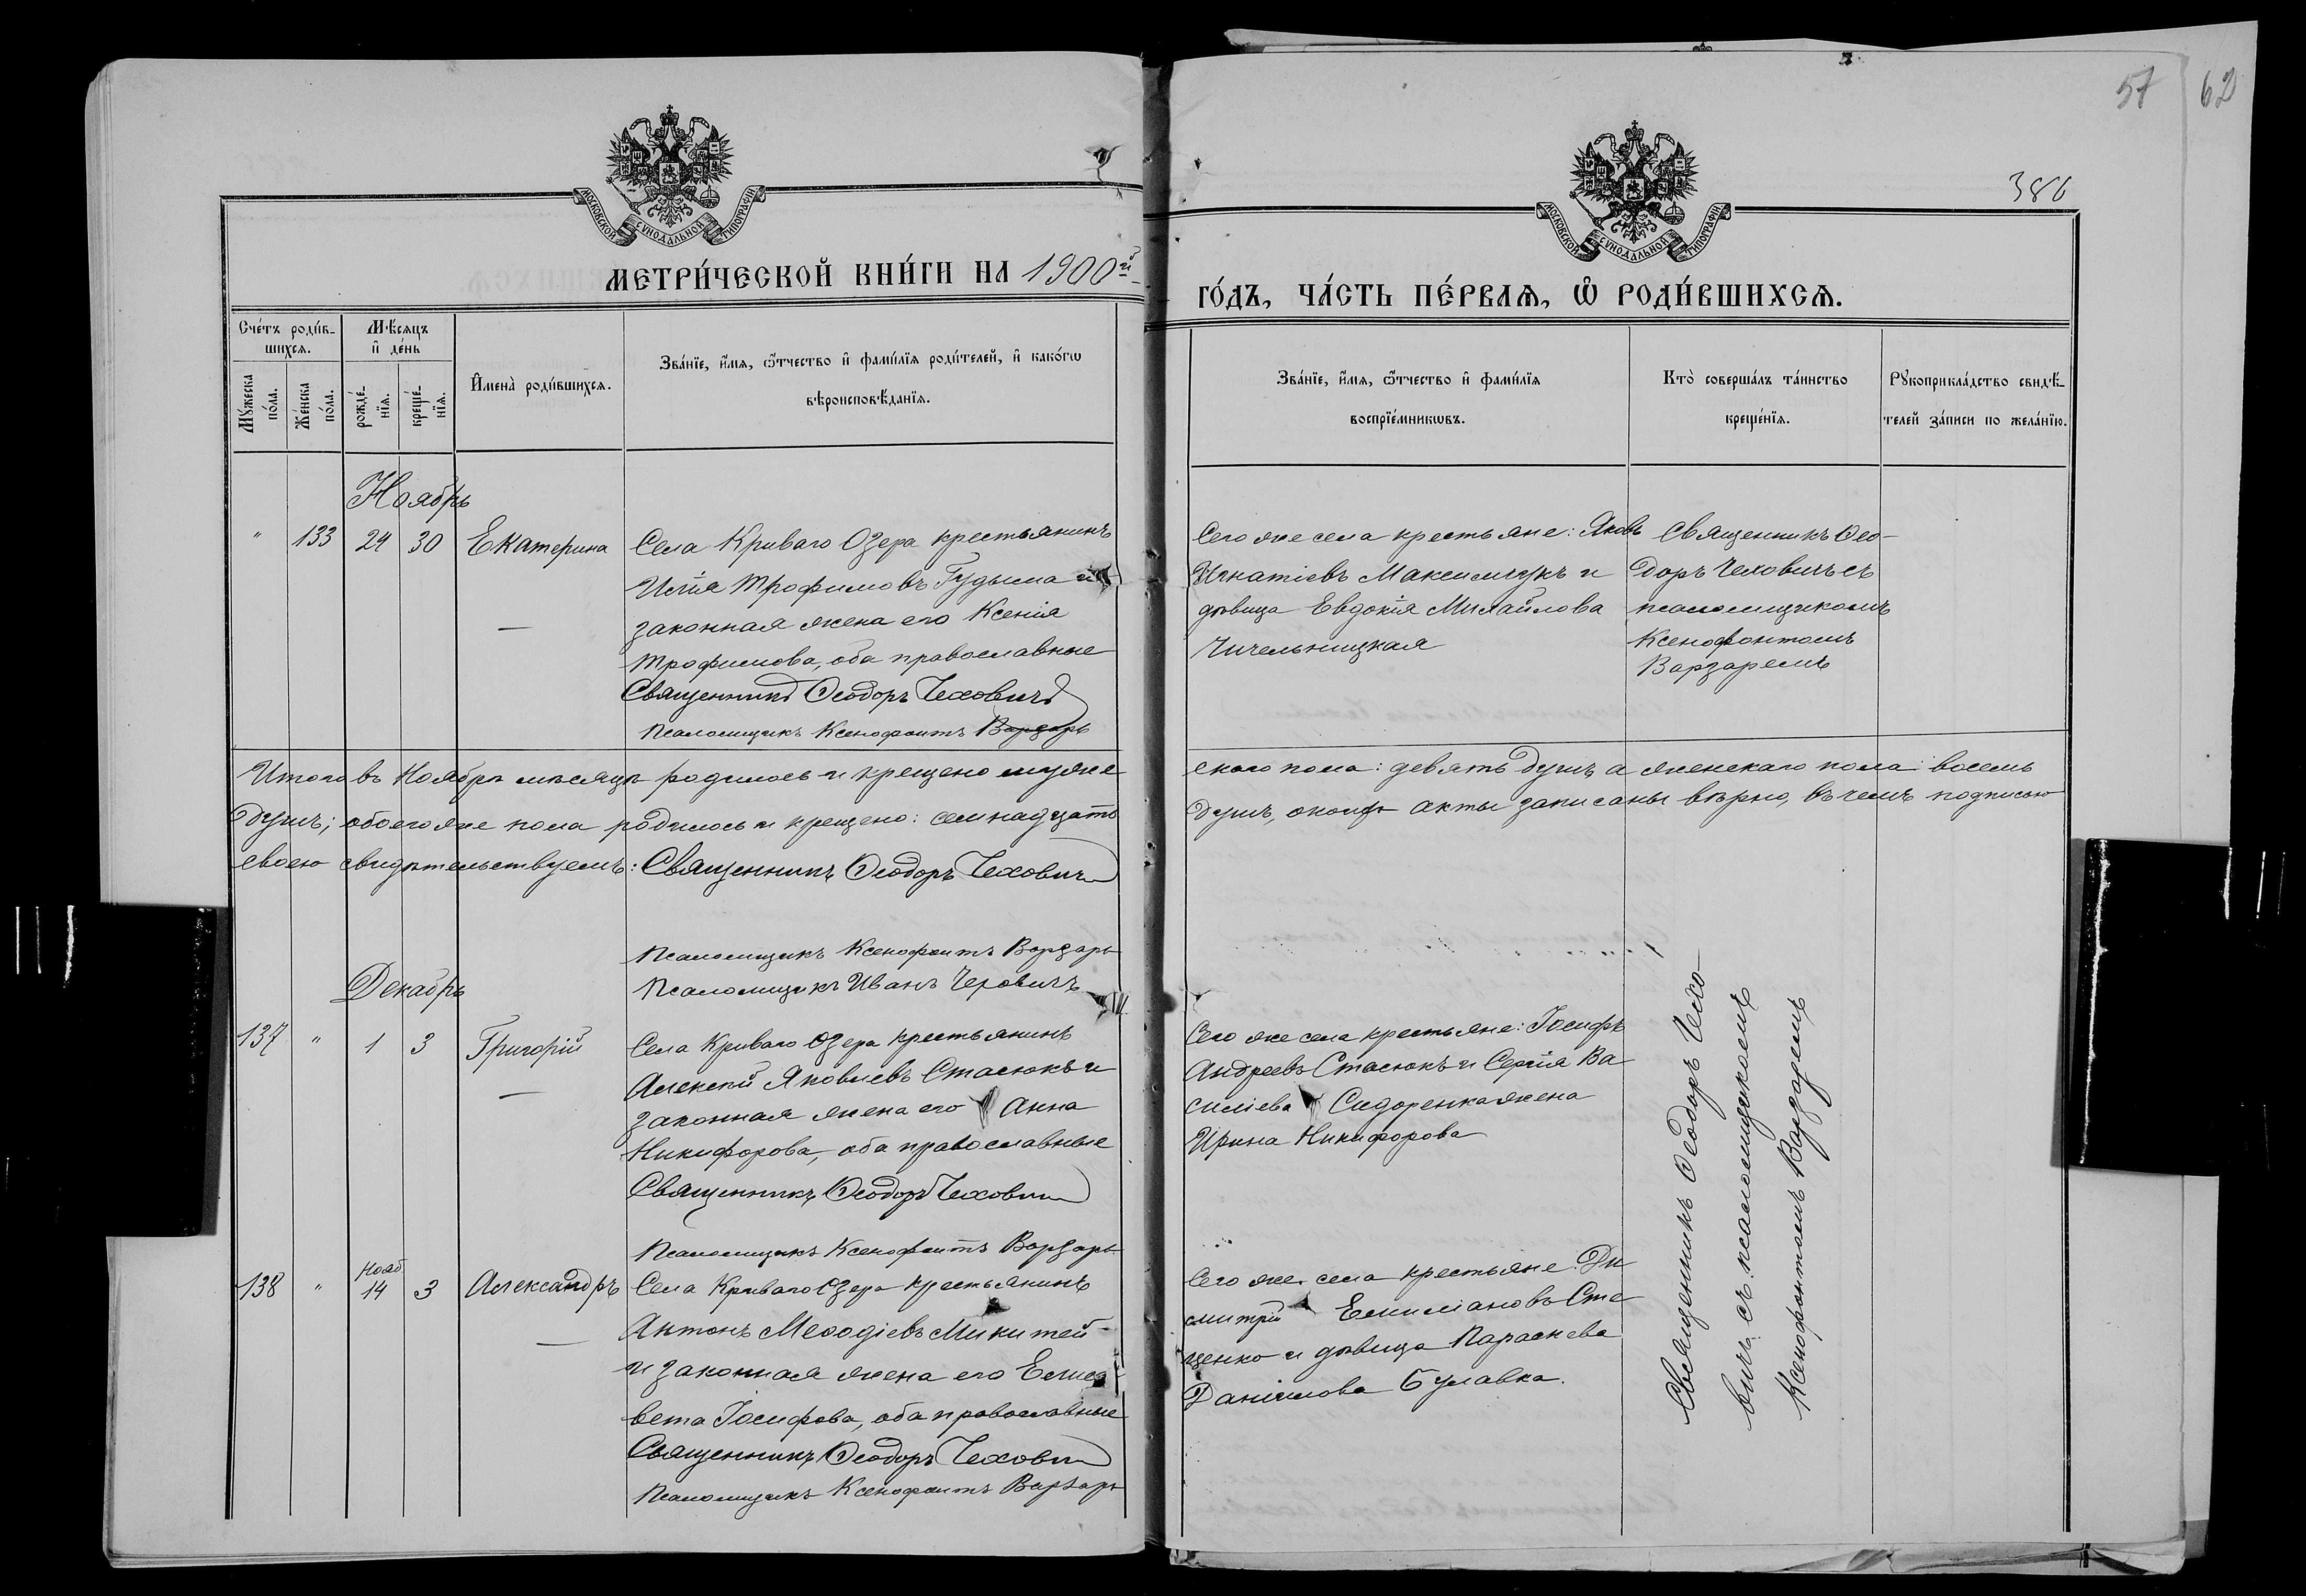 57
62
МОСКОВСКОЙ СУНОДАЛЬНОЙ ТИПОГРАФІИ
МОСКОВСКОЙ СУНОДАЛЬНОЙ ТИПОГРАФІИ
386
МЕТРИ́ЧЕСКОЙ КНИ́ГИ НА 1900й
ГО́ДЪ, ЧА́СТЬ ПЕ́РВАѦ, Ѡ҆ РОДИ́ВШИХСѦ.
Сче́тъ роди́в-
шихсѧ.
Мѣ́сѧцъ
и҆ де́нь
Мꙋ́жеска
по́ла.
Же́нска
по́ла.
рожде́-
нїѧ.
креще́-
нїѧ.
И҆мена̀ роди́вшихсѧ.
Зва́нїе, и҆́мѧ, ѻ҆́тчество и҆ фами́лїѧ роди́телей, и҆ како́гѡ
вѣроисповѣ́данїѧ.
Зва́нїе, и҆́мѧ, ѻ҆́тчество и҆ фами́лїѧ
воспрїе́мникѡвъ.
Кто̀ соверша́лъ та́инство
креще́нїѧ.
Рꙋкоприкла́дство свидѣ́-
телей за́писи по жела́нїю.
Ноябрь
" 133 24 30 Екатерина
Села Криваго Озера крестьянинъ
Илія Трофимовъ Гудыма и
законная жена его Ксенія
Трофимова, оба православные
Священникъ Ѳеодоръ Чеховичъ
Псаломщикъ Ксенофонтъ Варзарь
Сего же села крестьяне: Яковъ
Игнатіевъ Максимчукъ и
дѣвица Евдокія Михайлова
Чичельницкая
Священникъ Ѳео-
доръ Чеховичъ съ
псаломщикомъ
Ксенофонтомъ
Варзаремъ
Итого въ Ноябрѣ мѣсяцѣ родилось и крещено муже
скаго пола: девять душъ, а женскаго пола: восемь
душъ; обоего же пола родилось и крещено: семнадцать
душъ, о коихъ акты записаны вѣрно, въ чемъ подписью
своею свидѣтельствуемъ: Священникъ Ѳеодоръ Чеховичъ
Псаломщикъ Ксенофонтъ Варзарь
Псаломщикъ Иванъ Черовичъ
Декабрь
137 " 1 3 Григорій
Села Криваго Озера крестьянинъ
Алексій Яковлевъ Стасюкъ и
законная жена его Анна
Никифорова, оба православные
Священникъ Ѳеодоръ Чеховичъ
Псаломщикъ Ксенофонтъ Варзарь
Сего же села крестьяне: Іосифъ
Андреевъ Стасюкъ и Сергія Ва
силіева Сидоренка жена
Ирина Никифорова
Священникъ Ѳеодоръ Чехо-
вичъ съ псаломщикомъ
Ксенофонтомъ Варзаремъ
138 " Нояб 14 3 Александръ
Села Криваго Озера крестьянинъ
Антонъ Меѳодіевъ Микитей
и законная жена его Елиса
вета Іосифова, оба православные
Священникъ Ѳеодоръ Чеховичъ
Псаломщикъ Ксенофонтъ Варзарь
Сего же села крестьяне: Ди
митрій Емиліановъ Сте
ценко и дѣвица Параскева
Даніилова Булавка.